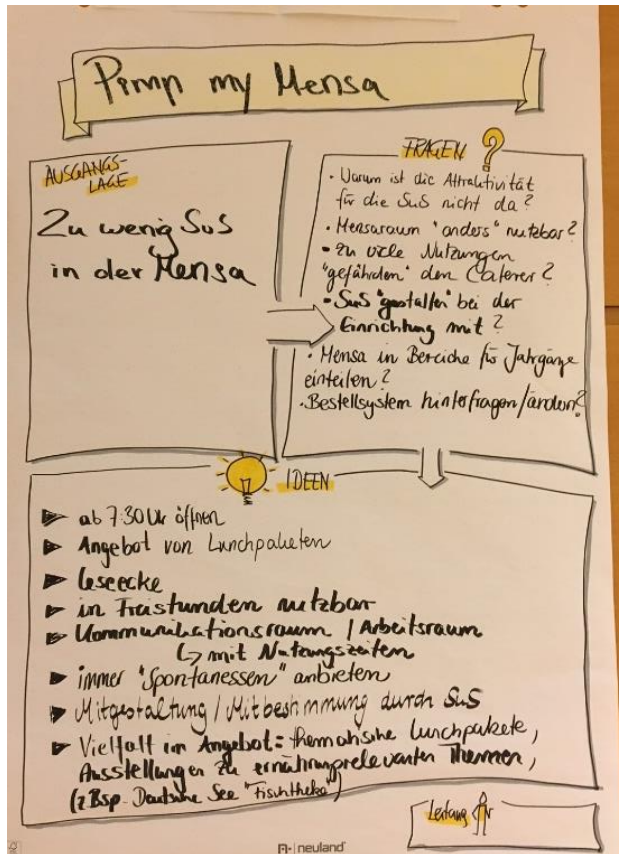 Pimp my Mensa
AUSGANGS-
LAGE
Zu wenig SuS
in der Mensa
FRAGEN ?
· Warum ist die Attraktivität
für die SuS nicht da?
· Mensaraum "anders" nutzbar?
· Zu viele Nutzungen
"gefährden" den Caterer?
· SuS "gestalten" bei der
Einrichtung mit?
· Mensa in Bereiche für Jahrgänge
einteilen?
· Bestellsystem hinterfragen/ändern?
IDEEN
▶ ab 7:30 Uhr öffnen
▶ Angebot von Lunchpaketen
▶ Leseecke
▶ in Freistunden nutzbar
▶ Kommunikationsraum / Arbeitsraum
↳ mit Nutzungszeiten
▶ immer "Spontanessen" anbieten
▶ Mitgestaltung / Mitbestimmung durch SuS
▶ Vielfalt im Angebot: thematische Lunchpakete,
Ausstellungen zu ernährungsrelevanten Themen,
(z.Bsp. Deutsche See "Fischtheke")
Leitung
neuland